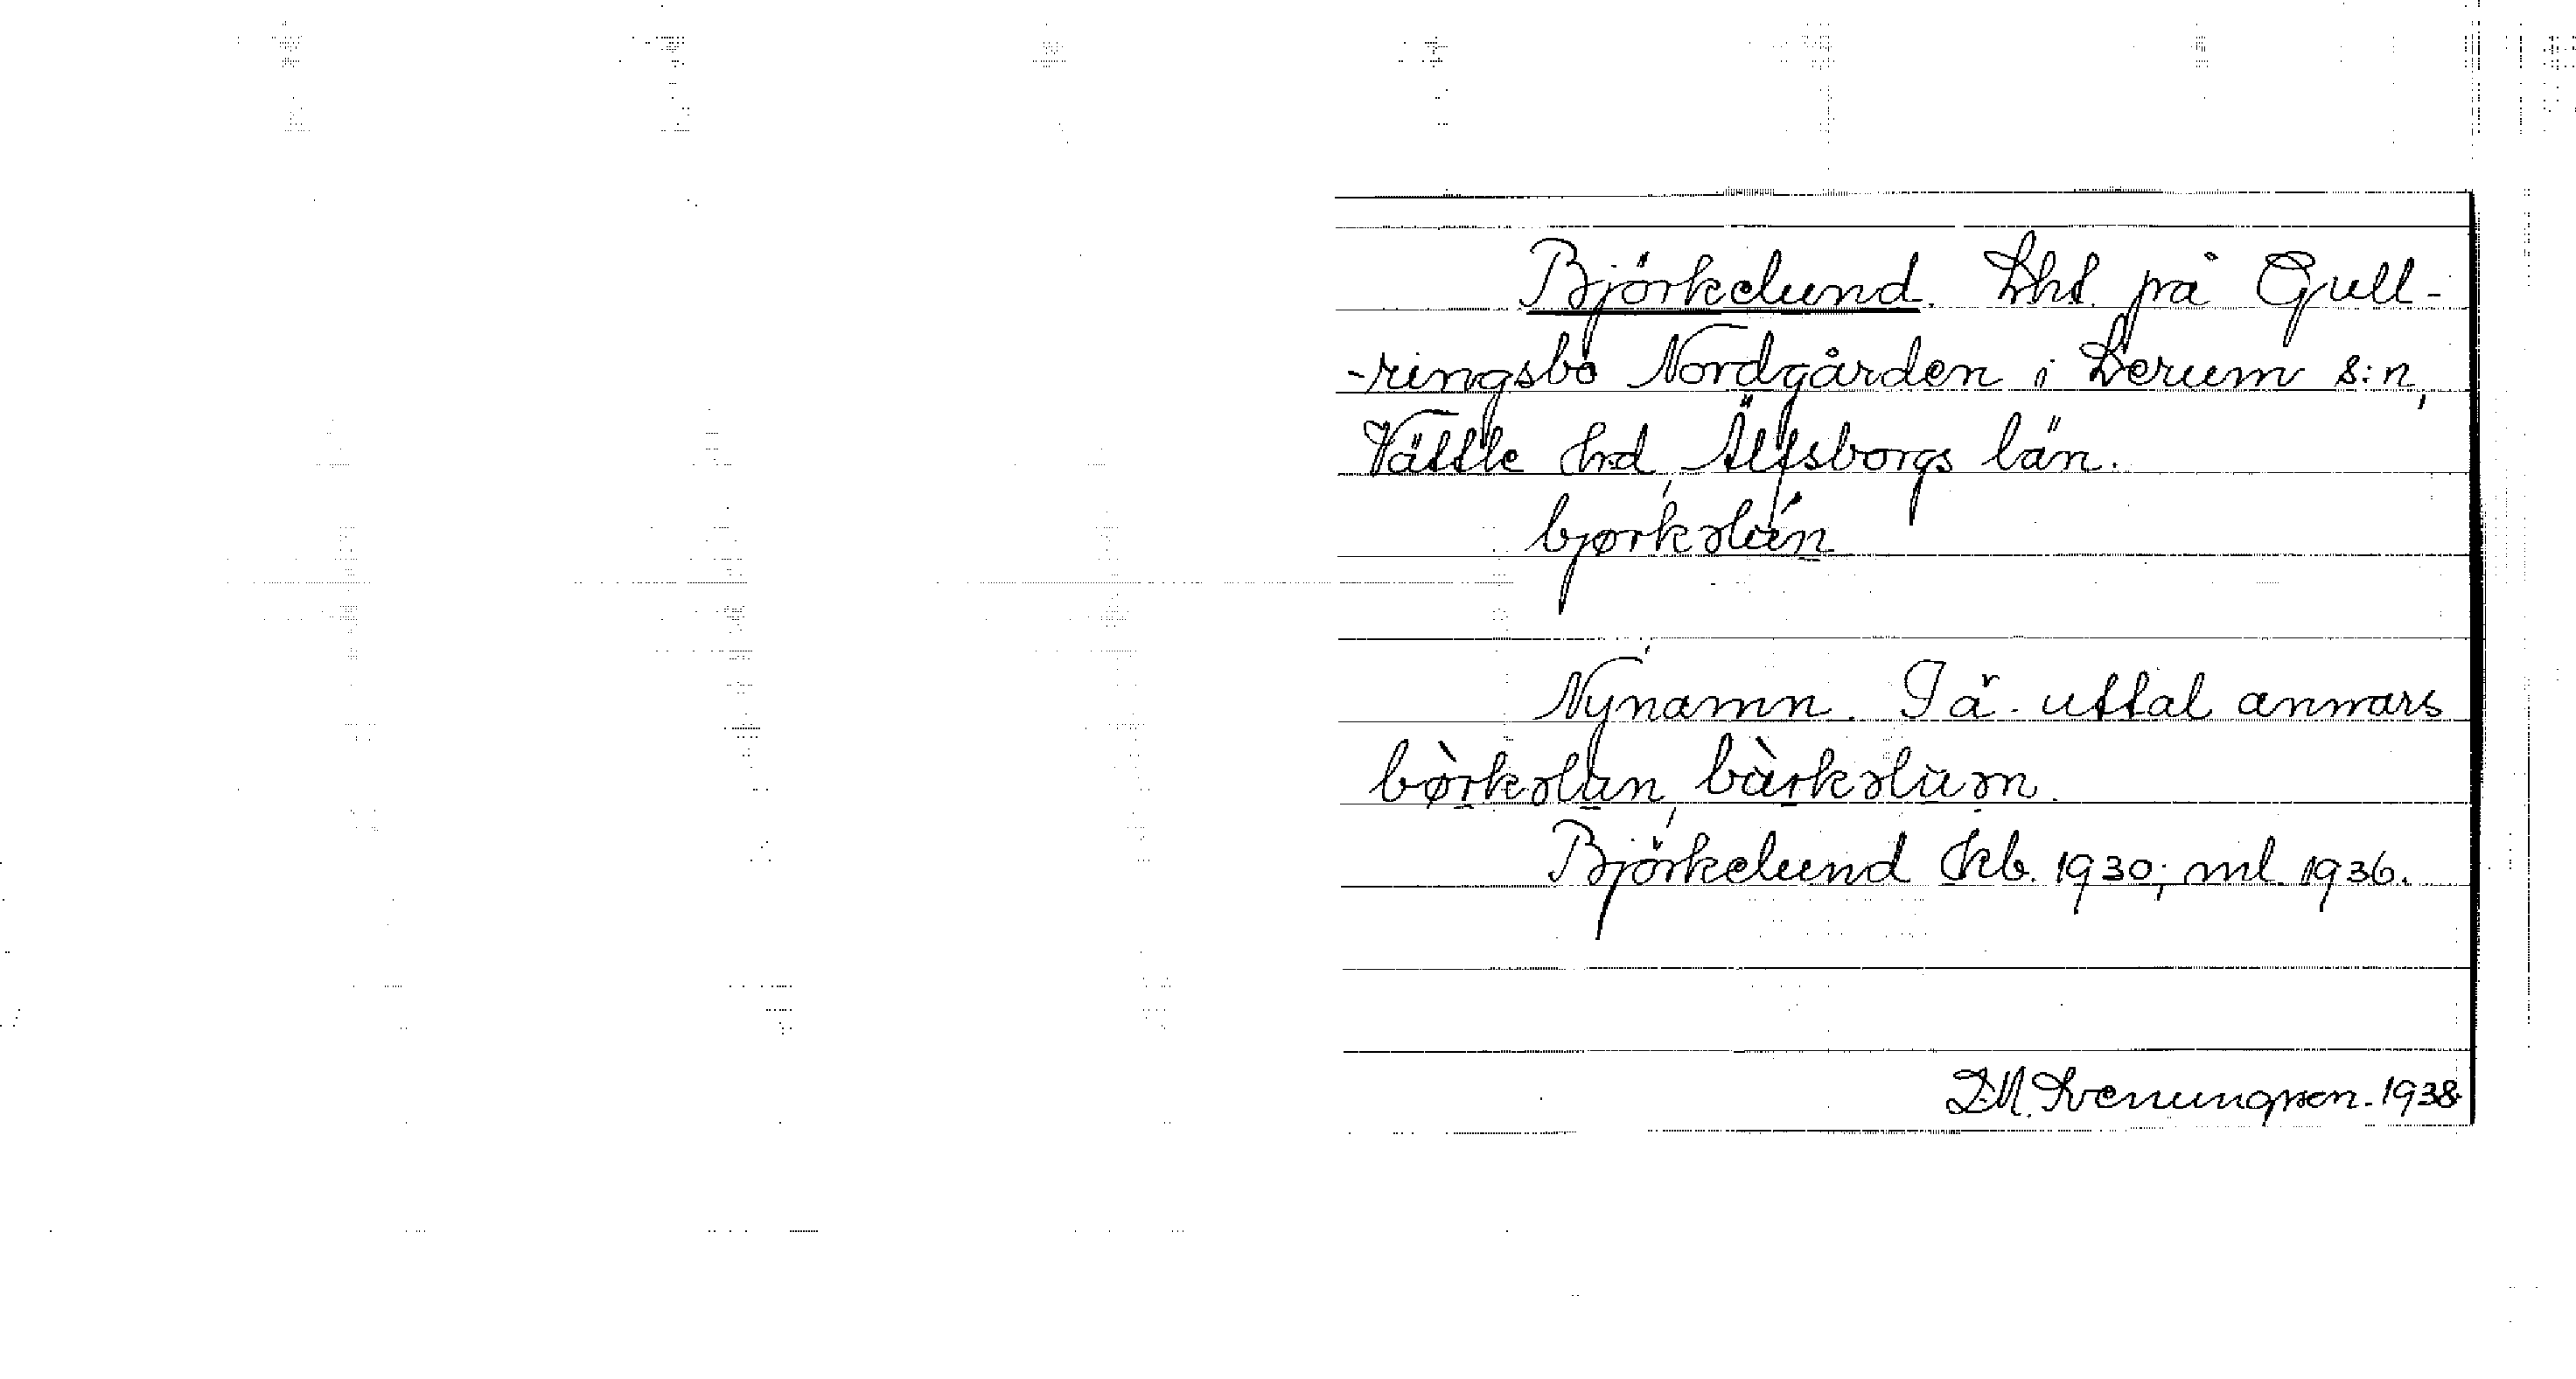 Björkelund. Lht. på Gull-
-ringsbo Nordgården i Lerum s:n,
Vättle hd, Älfsborgs län.
bjørkəlún
Nynamn. I ä. uttal annars
bø̀rkəlun, bàrkəluən.
Björkelund kb. 1930; ml. 1936.
1938